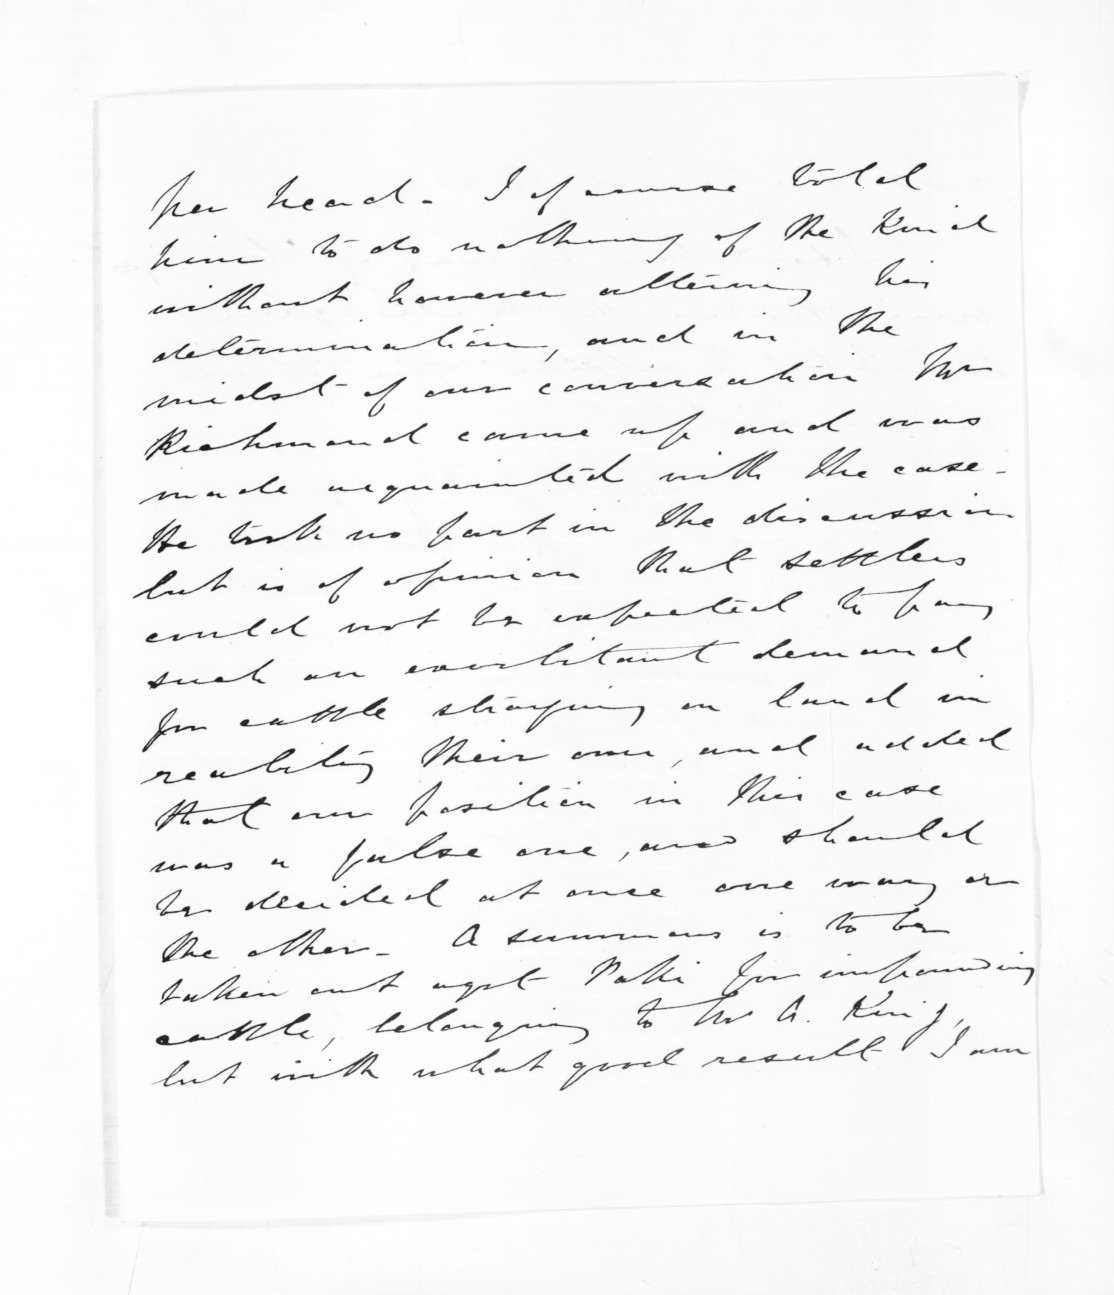 per head. I of course told
him to do nothing of the kind
without however altering his
determination, and in the
midst of our conversation Mr
Richmond came up and was
made acquainted with the case.
He took no part in the discussion
but is of opinion that settlers
could not be expected to pay
such an exorbitant demand
for cattle straying on land in
reality their own, and added
that our position in this case
was a false one, and should
be decided at once one way or
the other. A summons is to be
taken out agst Paki for impounding
cattle, belonging to Mr A. King,
but with what good result I am